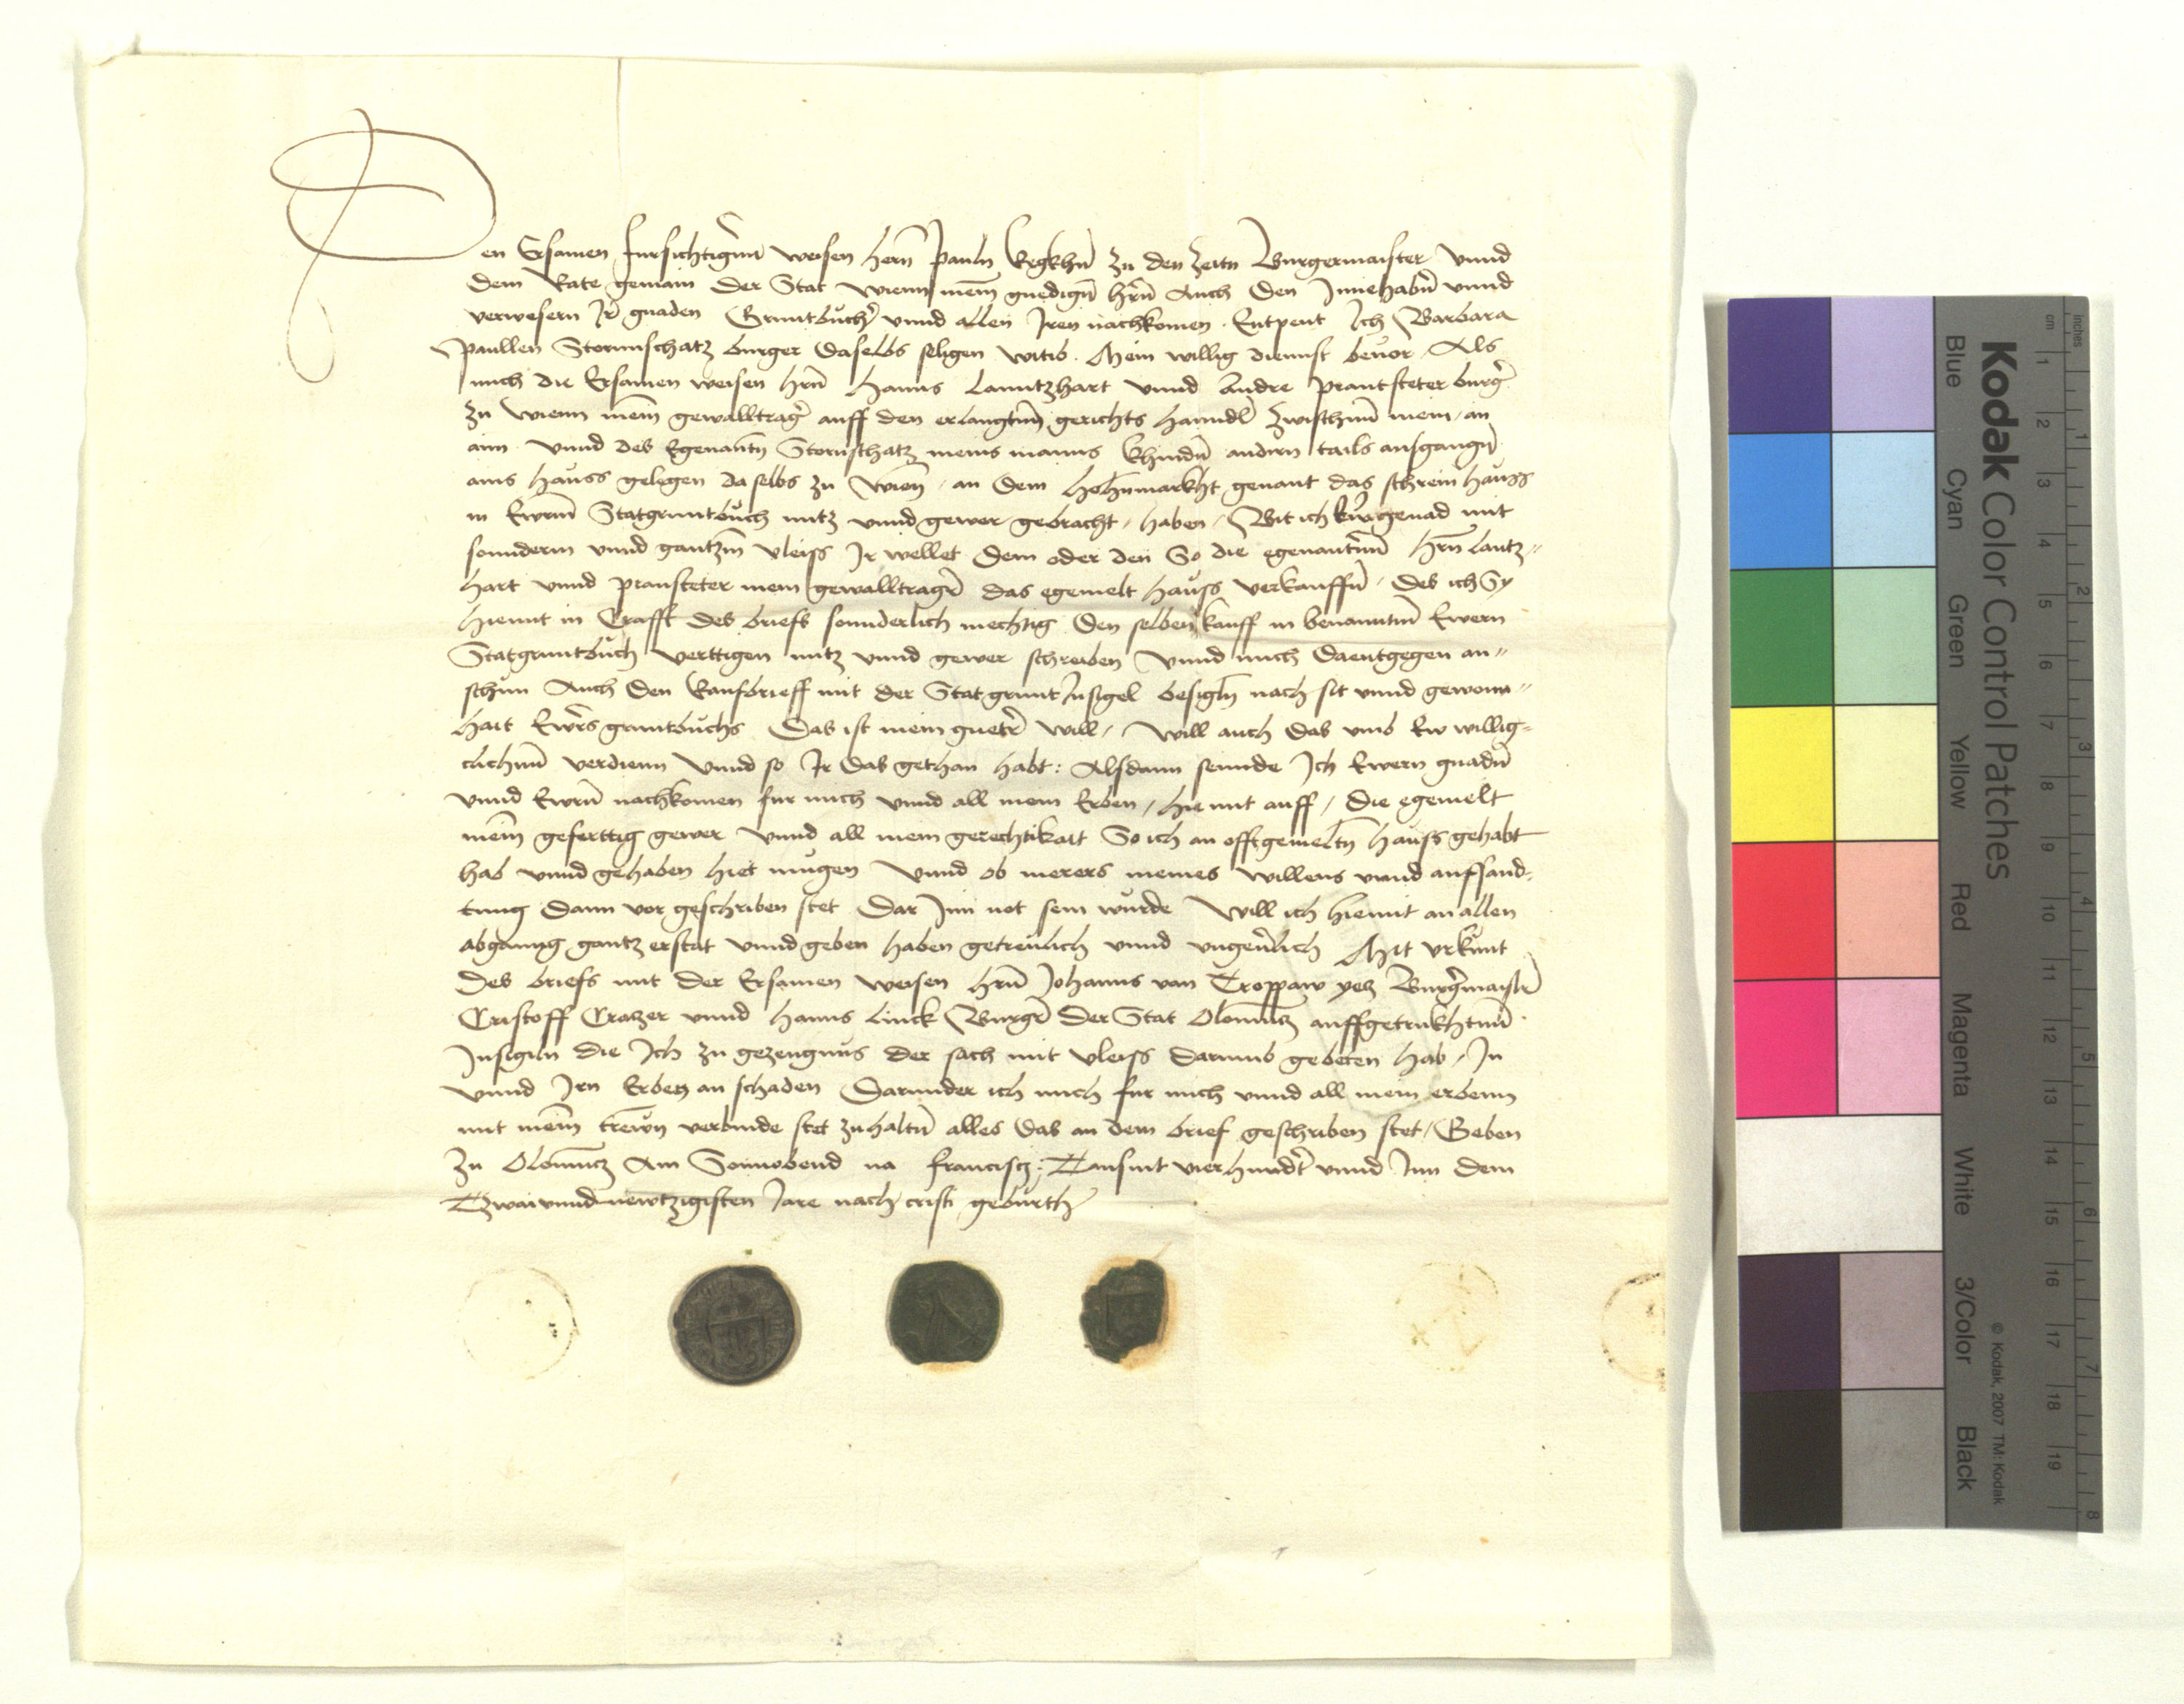 Den Ersamen fursichtigen weisen hern Pauln Kegkhn zu den zeitn Burgermaister vnnd
dem Rate gemain der Stat Wienn meinn gnedign hern Auch den Innehabern vnnd
verwesern Ir gnaden Gruntbucher vnnd allen Iren nachkomen. Entpeut Ich Barbara
Paullen Stornschatz burger daselbs seligen witib. Mein willig diennst beuor. Als
mich die Ersamen weisen hern Hanns Lanntzhart vnnd Andre Prantsteter burger
zu Wienn mein gewalltrager auff den erlangtnn gerichts hanndl zwischnn mein, an
ain vnnd des Egenantn Stornschatz meins manns khindn andern tails ausgangn
ains hauss gelegen daselbs zu Wienn, an dem hohnmarkht genant das schrein hauss
in Ewrnn Statgruntbuch nutz vnnd gewer gebracht, haben, Bit ich Ewr genad mit
sonnderm vnnd gantzm vleiss Ir wellet dem oder den So die egenantnn hern Lantz-
hart vnnd Pransteter mein gewalltrager das egemelt hauss verkauffn, des ich Sy
hiemit in Crafft des briefs sonnderlich mechtig den selben kauff in benanntnn Ewern
Statgruntbuch verttigen nutz vnnd gewer schreiben vnnd mich daentgegen an-
schnn Auch den kaufbrieff mit der Statgrunt Insigel besigln nach sit vnnd gewonn-
hait Ewrs gruntbuchs Das ist mein gueter will, Will auch das vmb Ew willig-
clichnn verdienn Vnnd so Ir das gethan habt: Alsdann sennde Ich Ewern gnadn
vnnd Ewrn nachkomen fur mich vnnd all mein Erben, hie mit auff, die egemelt
mein geferttig gewer vnnd all mein gerechtikait So ich an offtgemeltn hauss gehabt
hab vnnd gehaben hiet mugen Vnnd ob merers meines willens vnnd aufsand-
tung dann vor geschriben stet dar Inn not sein wurde Will ich hiemit an allen
abganng gantz erstat vnnd geben haben getreulich vnnd vngeuerlich Mit vrkunt
des briefs mit der Ersamen weisen hern Johanns von Troppaw yetz Burgermaister
Cristoff Cratzer vnnd Hanns Linck Burger der Stat Olomuntz auffgetrukhtnn
Insigiln die Ich zu gezeugnus der sach mit vleiss darumb gebeten hab, In
vnnd Irn Erben an schaden Darunder ich mich fur mich vnnd all mein erbenn
mit mein trewn verbinde stet zuhaltn alles das an dem brief geschriben stet, Geben
zu Olomuntz Am Sonnobend na Francisci; Tausint vierhundert vnnd Inn dem
Tzwaivnndnewtzigisten Jare nach cristi geburth
Kodak Color Control Patches
Blue Cyan Green Yellow Red Magenta White 3/Color Black
© Kodak, 2007 TM: Kodak
cm 1 2 3 4 5 6 7 8 9 10 11 12 13 14 15 16 17 18 19
inches 1 2 3 4 5 6 7 8